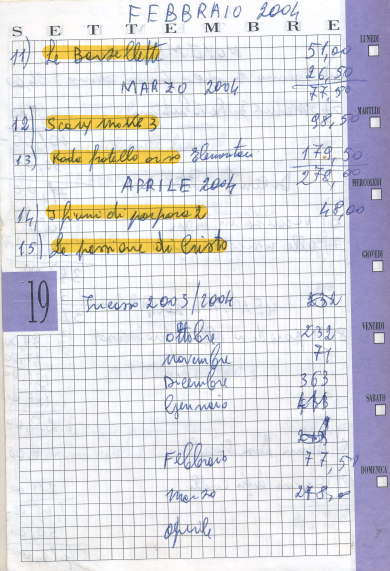 FEBBRAIO 2004
SETTEMBRE
11) Le Barzellette 51,00
26,50
77,50
MARZO 2004
12) Scary Movie 3 98,50
13) Koda fratello orso Elementari 179,50
278,00
APRILE 2004
14) I fiumi di porpora 2 48,00
15) La passione di Cristo
19
Incasso 2003/2004
Ottobre 232
Novembre 71
Dicembre 363
Gennaio
Febbraio 77,50
Marzo 278,00
Aprile
LUNEDI
MARTEDI
MERCOLEDI
GIOVEDI
VENERDI
SABATO
DOMENICA